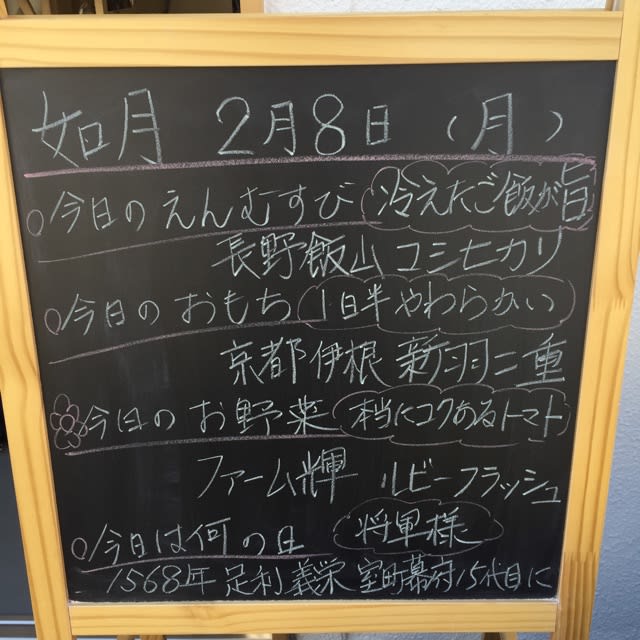 如月 2月8日 (月)
○今日のえんむすび 冷えたご飯が旨
長野飯山 コシヒカリ
○今日のおもち 1日半やわらかい
京都伊根 新羽二重
今日のお野菜 本当にコクあるトマト
ファーム輝 ルビーフラッシュ
○今日は何の日 将軍様
1568年 足利義栄 室町幕府15代目に